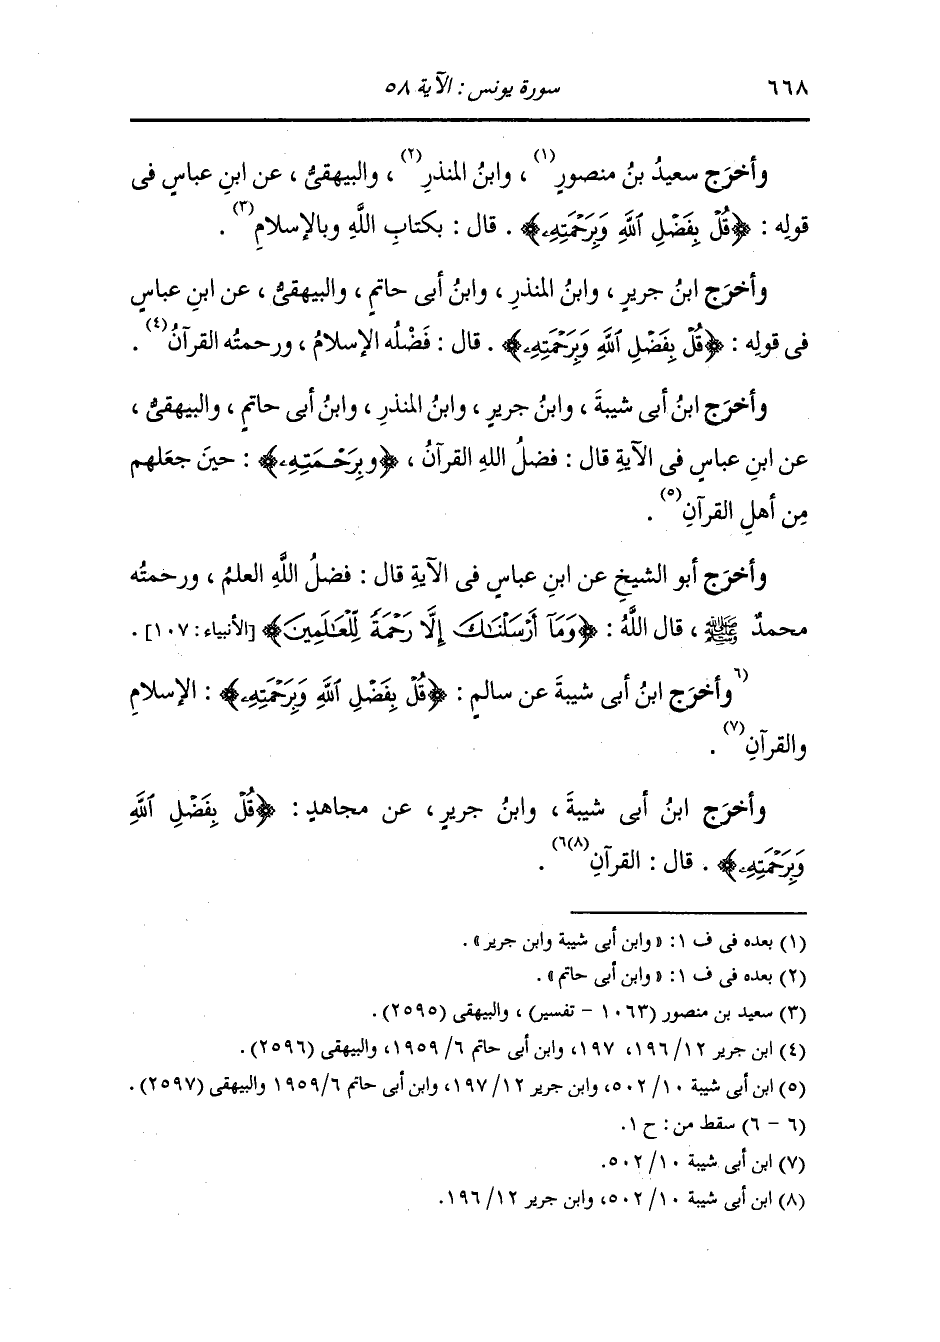 ٦٦٨ سورة يونس : الآية ٥٨
وأخرَج سعيدُ بنُ منصورٍ(١) ، وابنُ المنذرِ(٢) ، والبيهقىُّ ، عن ابنِ عباسٍ فى
قولِه : ﴿قُلْ بِفَضْلِ ٱللَّهِ وَبِرَحْمَتِهِۦ﴾ . قال : بكتابِ اللَّهِ وبالإسلامِ(٣) .
وأخرَج ابنُ جريرٍ ، وابنُ المنذرِ ، وابنُ أبى حاتمٍ ، والبيهقىُّ ، عن ابنِ عباسٍ
فى قولِه : ﴿قُلْ بِفَضْلِ ٱللَّهِ وَبِرَحْمَتِهِۦ﴾ . قال : فَضْلُه الإسلامُ ، ورحمتُه القرآنُ(٤) .
وأخرَج ابنُ أبى شيبةَ ، وابنُ جريرٍ ، وابنُ المنذرِ ، وابنُ أبى حاتمٍ ، والبيهقىُّ ،
عن ابنِ عباسٍ فى الآيةِ قال : فضلُ اللهِ القرآنُ ، ﴿وبِرَحْمَتِهِۦ﴾ : حينَ جعَلهم
مِن أهلِ القرآنِ(٥) .
وأخرَج أبو الشيخِ عن ابنِ عباسٍ فى الآيةِ قال : فضلُ اللَّهِ العلمُ ، ورحمتُه
محمدٌ ﷺ ، قال اللَّهُ : ﴿وَمَآ أَرْسَلْنَٰكَ إِلَّا رَحْمَةً لِّلْعَٰلَمِينَ﴾ [الأنبياء : ١٠٧] .
(٦وأخرَج ابنُ أبى شيبةَ عن سالمٍ : ﴿قُلْ بِفَضْلِ ٱللَّهِ وَبِرَحْمَتِهِۦ﴾ : الإسلامِ
والقرآنِ(٧) .
وأخرَج ابنُ أبى شيبةَ ، وابنُ جريرٍ ، عن مجاهدٍ : ﴿قُلْ بِفَضْلِ ٱللَّهِ
وَبِرَحْمَتِهِۦ﴾ . قال : القرآنِ(٨)٦) .
(١) بعده فى ف ١: « وابن أبى شيبة وابن جرير » .
(٢) بعده فى ف ١: « وابن أبى حاتم » .
(٣) سعيد بن منصور (١٠٦٣ - تفسير) ، والبيهقى (٢٥٩٥) .
(٤) ابن جرير ١٢/ ١٩٦، ١٩٧، وابن أبى حاتم ٦/ ١٩٥٩، والبيهقى (٢٥٩٦) .
(٥) ابن أبى شيبة ١٠/ ٥٠٢، وابن جرير ١٢/ ١٩٧، وابن أبى حاتم ٦/١٩٥٩ والبيهقى (٢٥٩٧) .
(٦ - ٦) سقط من : ح ١.
(٧) ابن أبى شيبة ١٠/ ٥٠٢.
(٨) ابن أبى شيبة ١٠/ ٥٠٢، وابن جرير ١٢/ ١٩٦.